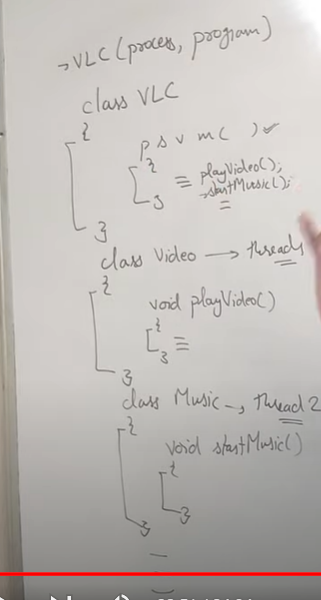 → VLC (process, program)
class VLC
{
p s v m ( ) ✓
{
≡ playVideo();
→ startMusic();
=
}
}
class Video → thread1
{
void playVideo()
{
≡
}
}
class Music → thread 2
{
void startMusic()
{
}
}